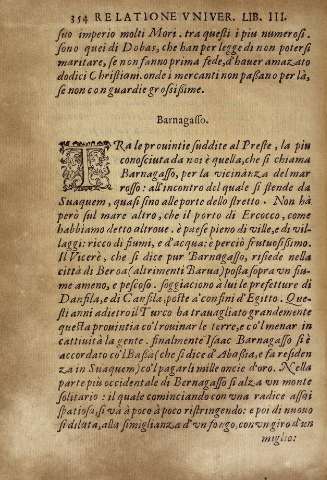 354 RELATIONE VNIVER. LIB. III.
suo imperio molti Mori. tra questi i piu numerosi.
sono quei di Dobas, che han per legge di non potersi
maritare, se non fanno prima fede, d'hauer amazato
dodici Christiani. onde i mercanti non passano per là,
se non con guardie grossissime.
Barnagasso.
TRa le prouintie suddite al Preste, la più
conosciuta da noi è quella, che si chiama
Barnagasso, per la vicinanza del mar
rosso: all'incontro del quale si stende da
Suaquem, quasi sino alle porte dello stretto. Non hà
però sul mare altro, che il porto di Ercocco, come
habbiamo detto altroue. è paese pieno di ville, e di vil-
laggi: ricco di fiumi, e d'acque: è perciò fruttuosissimo.
Il Vicerè, che si dice pur Barnagasso, risiede nella
città di Beroa (altrimenti Barua) posta sopra vn fiu-
me ameno, e pescoso. soggiaciono à lui le prefetture di
Danfila, e di Canfila, poste a' confini d'Egitto. Que-
sti anni adietro il Turco ha trauagliato grandemente
questa prouintia co'l rouinar le terre, e co'l menar in
cattiuità la gente. finalmente Isaac Barnagasso si è
accordato co'l Bassà (che si dice d'Abassia, e fa residen
za in Suaquem) co'l pagarli mille oncie d'oro. Nella
parte più occidentale di Bernagasso si alza vn monte
solitario: il quale cominciando con vna radice assai
spatiosa, si và à poco à poco ristringendo: e poi di nuouo
si dilata, alla simiglianza d'vn fongo, con vn giro d'un
miglio: